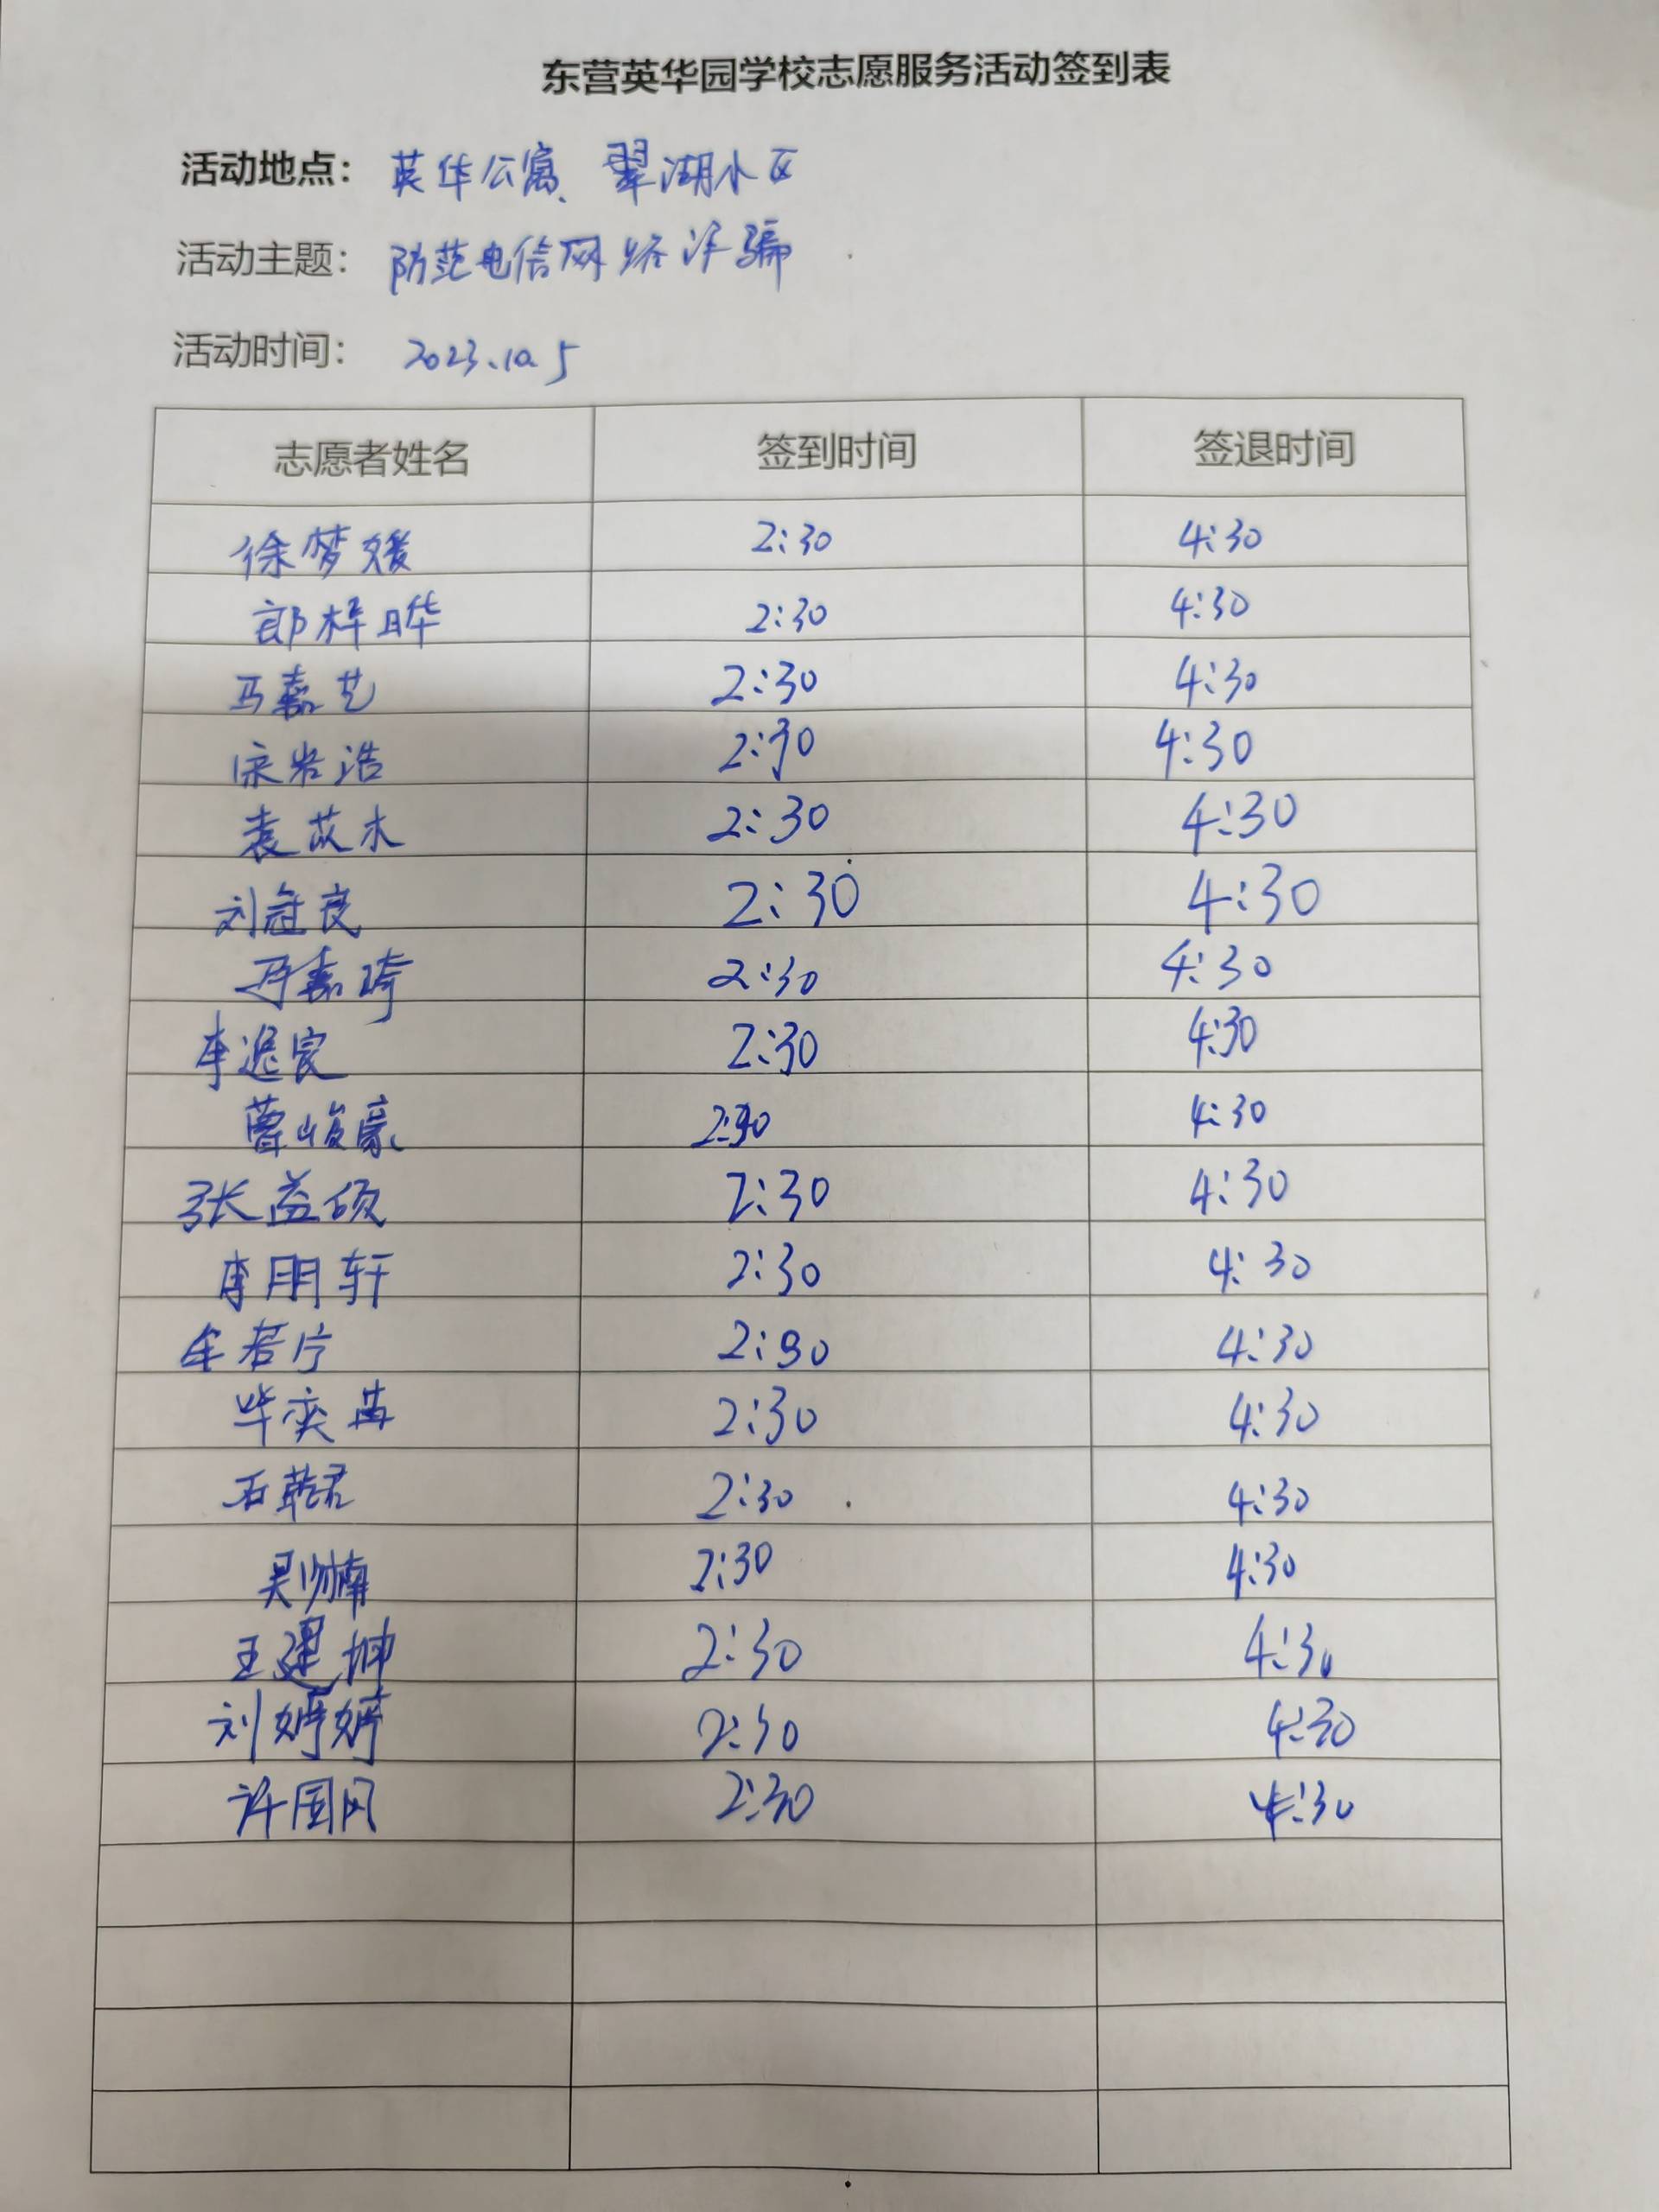 东营英华园学校志愿服务活动签到表
活动地点：英华公寓、翠湖小区
活动主题：防范电信网络诈骗
活动时间：2023.10.5
志愿者姓名 签到时间 签退时间
徐梦媛 2:30 4:30
郎梓晔 2:30 4:30
马嘉艺 2:30 4:30
宋岩浩 2:30 4:30
袁苡木 2:30 4:30
刘冠良 2:30 4:30
冯嘉琦 2:30 4:30
李 2:30 4:30
曹峻豪 2:30 4:30
张益硕 2:30 4:30
李朋轩 2:30 4:30
牟若 2:30 4:30
毕奕苒 2:30 4:30
石乾君 2:30 4:30
吴 楠 2:30 4:30
王建坤 2:30 4:30
刘婷婷 2:30 4:30
许国风 2:30 4:30